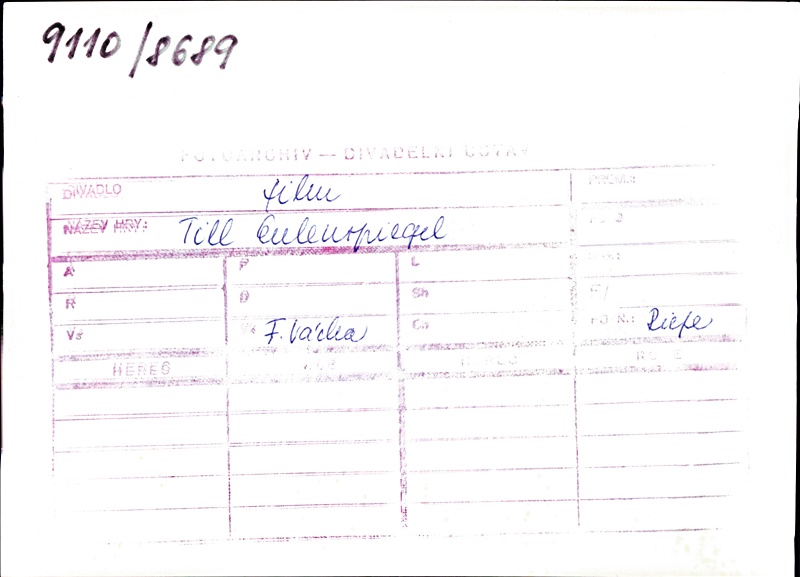 9110/8689
FOTOARCHIV — DIVADELNÍ ÚSTAV
DIVADLO film PREM.:
NÁZEV HRY: Till Eulenspiegel
A P L
R D Sb
Vs F. Vácha FO N.:
HEREC HEREC